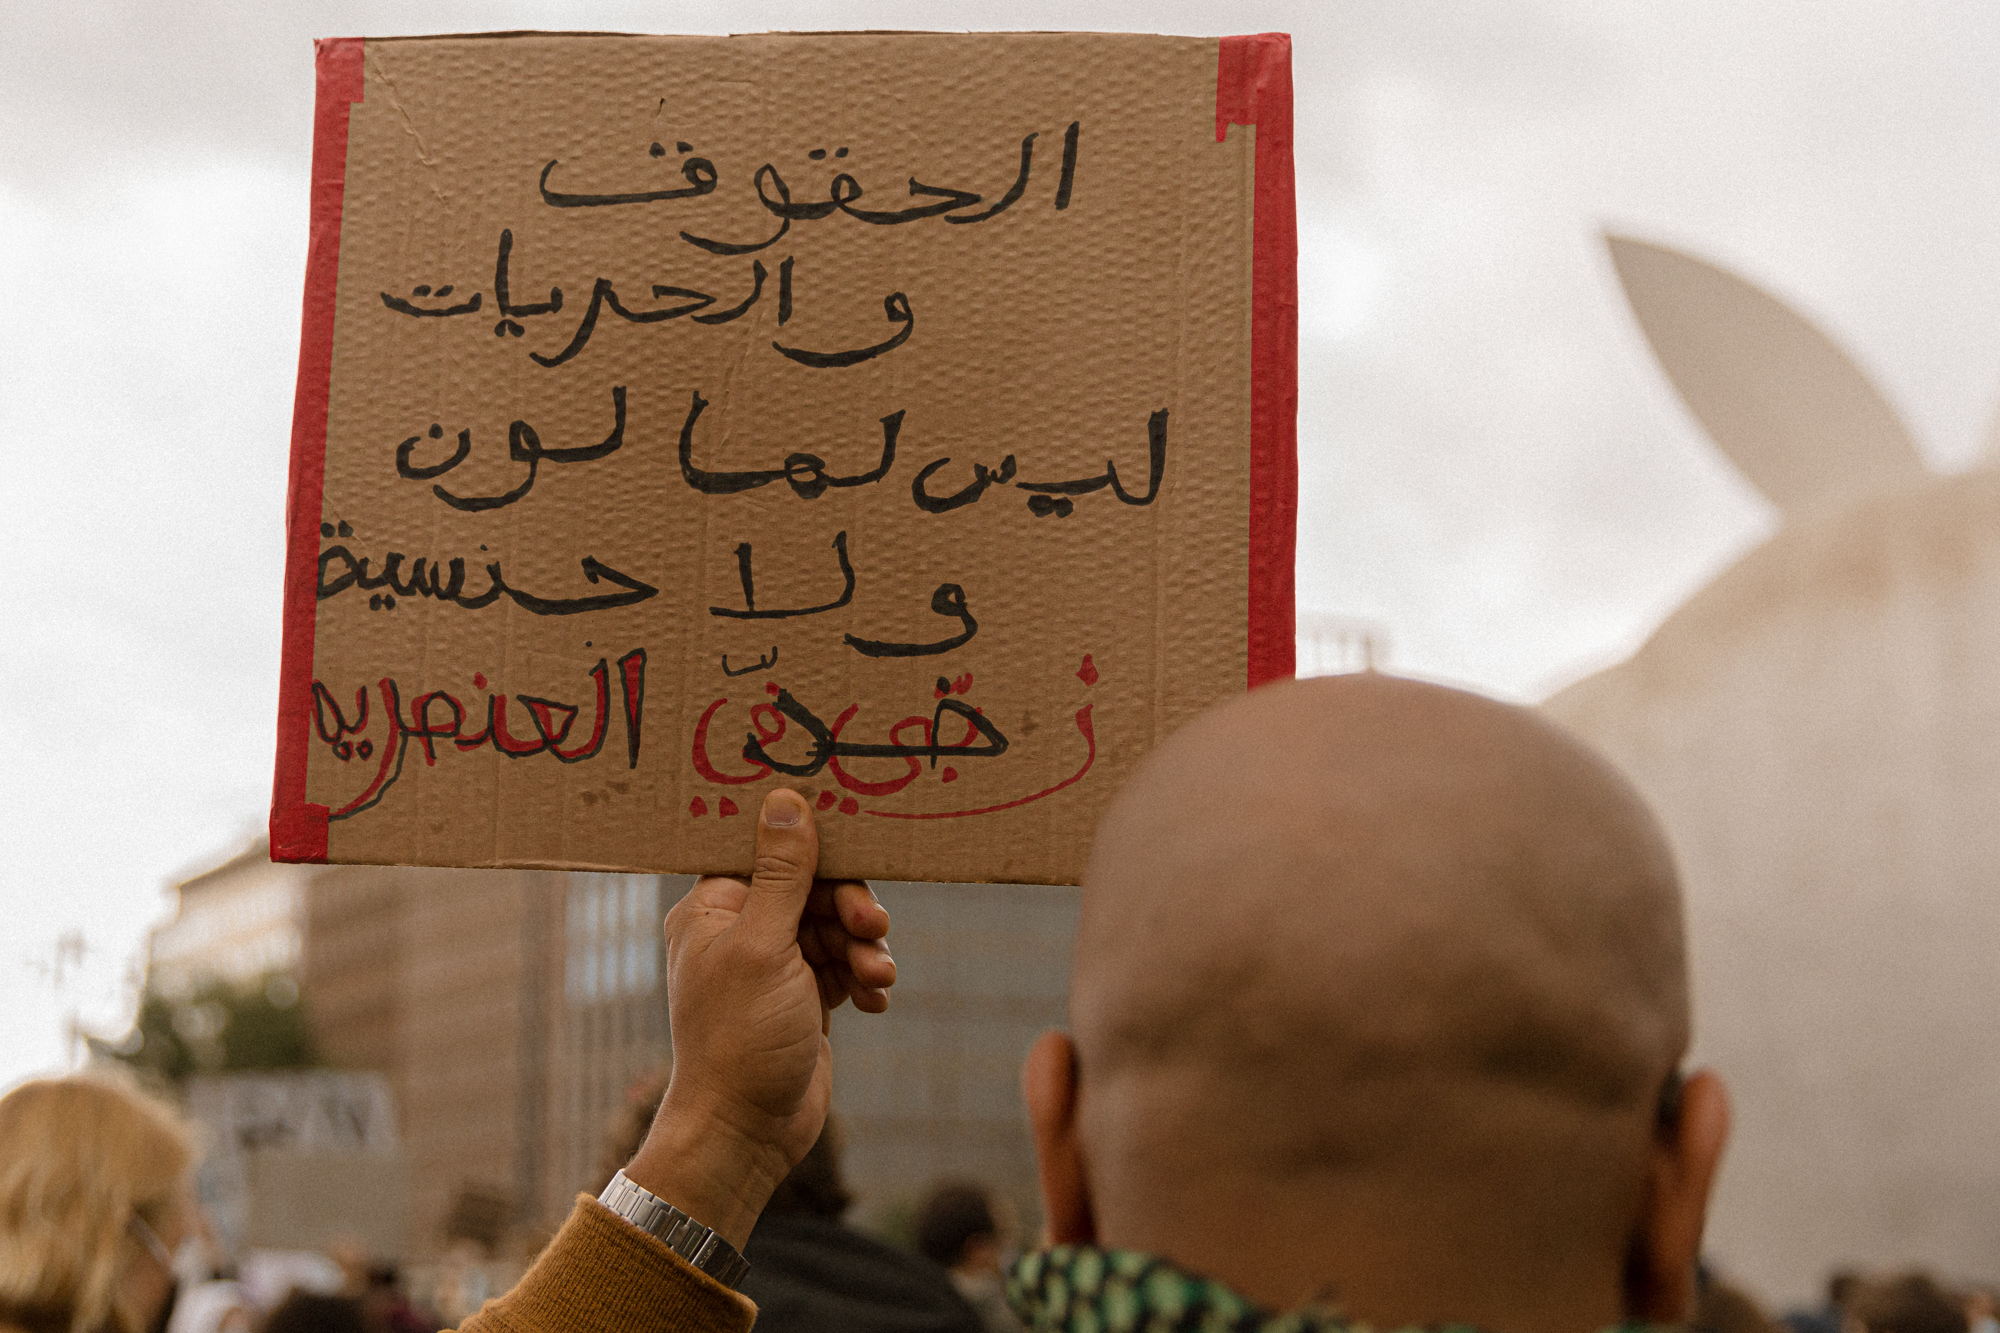 الحقوق
والحريات
ليس لها لون
ولا جنسية
ضد العنصريه